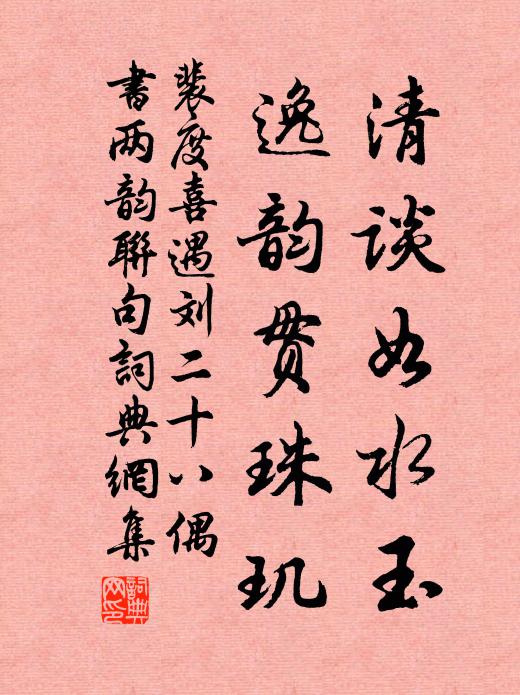 清谈如水玉
逸韵贯珠玑
裴度喜遇刘二十八偶
书两韵聯句詞典網集
詞典網印